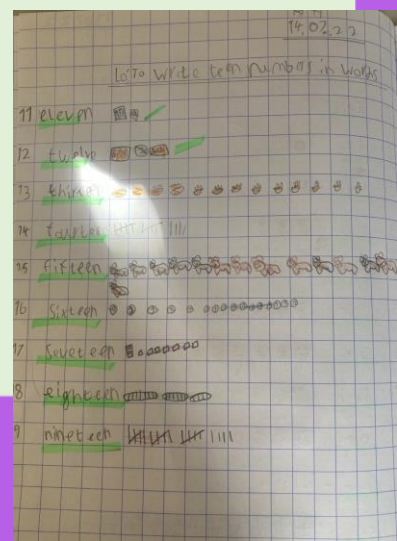 14.02.22
LO:To write teen numbers in words
11 eleven
12 twelve
13 thirteen
14 fourteen
15 fifteen
16 sixteen
17 seveteen
18 eighteen
19 nineteen